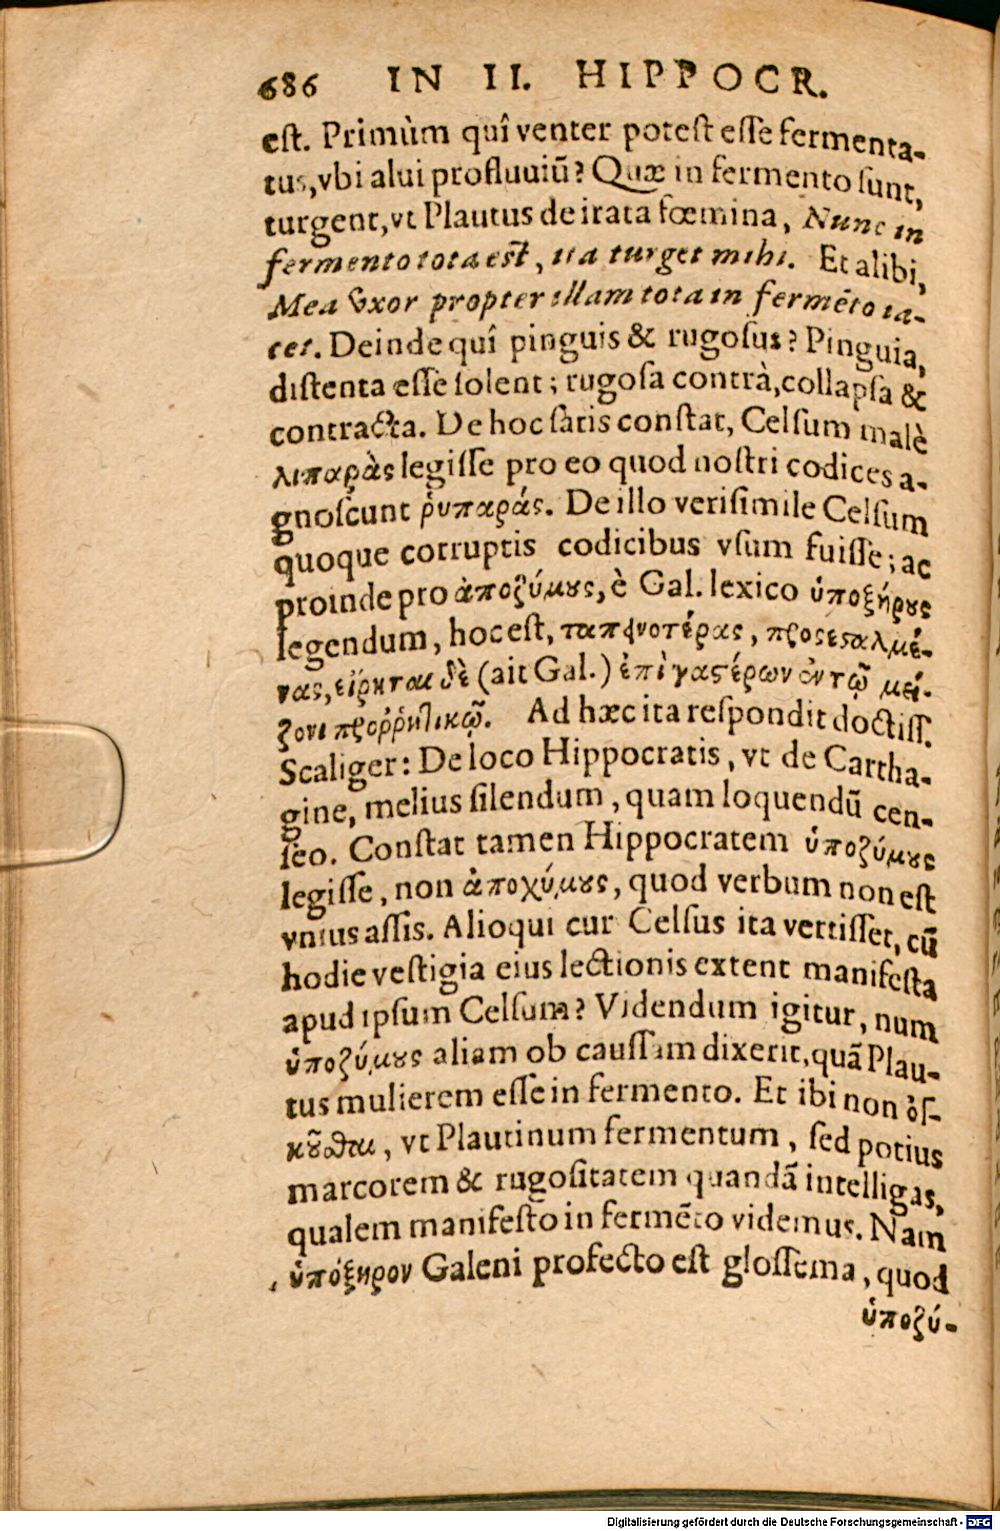 686 IN II. HIPPOCR.
est. Primùm quî venter potest esse fermenta-
tus, vbi alui profluuiũ? Quæ in fermento sunt,
turgent, vt Plautus de irata fœmina, Nunc in
fermento tota est, ita turget mihi. Et alibi,
Mea vxor propter illam tota in fermēto ia-
cet. Deinde quî pinguis & rugosus? Pinguia,
distenta esse solent; rugosa contrà, collapsa &
contracta. De hoc satis constat, Celsum malè
λιπαρὰς legisse pro eo quod nostri codices a-
gnoscunt ῥυπαράς. De illo verisimile Celsum
quoque corruptis codicibus vsum fuisse; ac
proinde pro ἀποζύμους, è Gal. lexico ὑποξήρους
legendum, hoc est, ταπεινοτέρας, προσεσταλμέ-
νας, εἴρηται δὲ (ait Gal.) ἐπὶ γαστέρων ἐν τῷ μεί-
ζονι προῤῥητικῷ. Ad hæc ita respondit doctiss.
Scaliger: De loco Hippocratis, vt de Cartha-
gine, melius silendum, quam loquendũ cen-
seo. Constat tamen Hippocratem ὑποζύμους
legisse, non ἀποχύμους, quod verbum non est
vnius assis. Alioqui cur Celsus ita vertisset, cũ
hodie vestigia eius lectionis extent manifesta
apud ipsum Celsum? Videndum igitur, num
ὑποζύμους aliam ob caussam dixerit, quã Plau-
tus mulierem esse in fermento. Et ibi non ὀγ-
κοῦσθαι, vt Plautinum fermentum, sed potius
marcorem & rugositatem quandã intelligas,
qualem manifesto in fermēto videmus. Nam
ὑπόξηρον Galeni profecto est glossema, quod
ὑποζύ-
Digitalisierung gefördert durch die Deutsche Forschungsgemeinschaft - DFG